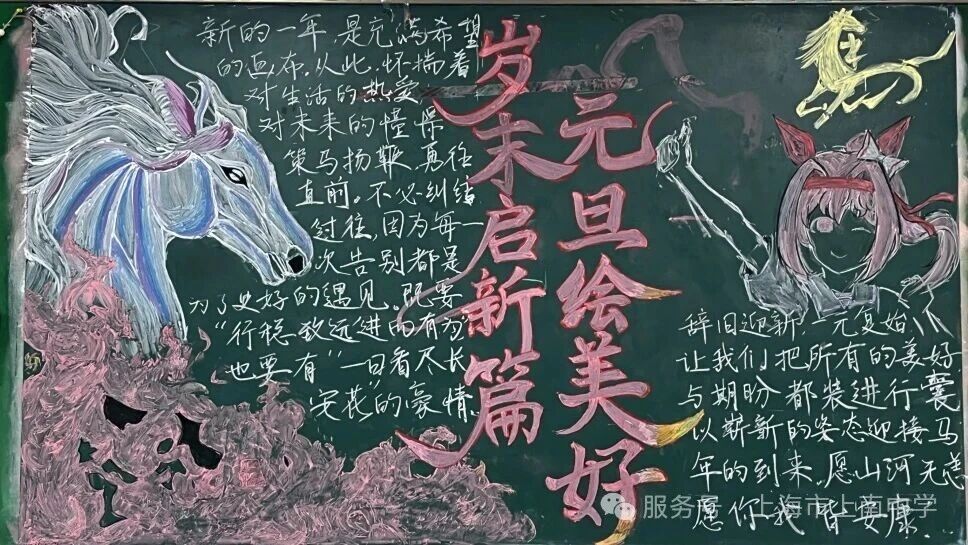 新的一年,是充满希望
的画布.从此,怀揣着
对生活的热爱
对未来的憧憬
策马扬鞭,勇往
直前。不必纠结
过往,因为每一
次告别都是
为了更好的遇见,既要
“行稳致远进而有为
也要有“一日看尽长
安花”的豪情.
岁末启新篇
元旦绘美好
辞旧迎新,一元复始
让我们把所有的美好
与期盼都装进行囊
以崭新的姿态迎接马
年的到来.愿山河无恙
愿你我皆安康...
服务号·上海市上南中学